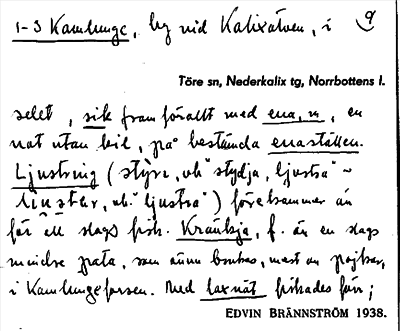 1-3 Kamlunge, by vid Kalixälven, i 9
Töre sn, Nederkalix tg, Norrbottens l.
selet, sik framförallt med ena, n, en
nät utan bil, på bestämda enaställen.
Ljustring ( vb. stydja, ljustra ~
vb. "ljustra") förekommer än
för all slags fisk. Kräukja, f. är en slags
mindre pata, som ännu brukas, mest av pojkar,
i Kamlungeforsen. Med laxnät fiskades förr;
EDVIN BRÄNNSTRÖM 1938.